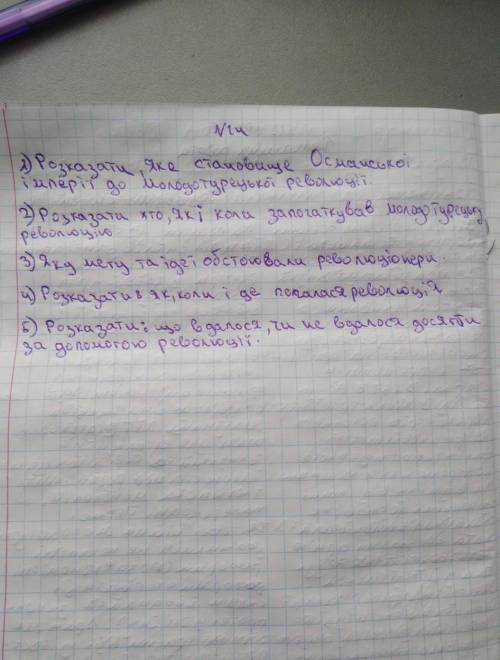 1) Розказати, яке становище Османської
імперії до молодотурецької революції.
2) Розказати хто, як і коли започаткував молодотурецьку
революцію
3) Яку мету та ідеї обстоювали революціонери.
4) Розказати: як, коли і де почалася революція
5) Розказати: що вдалося, чи не вдалося досягти
за допомогою революції.